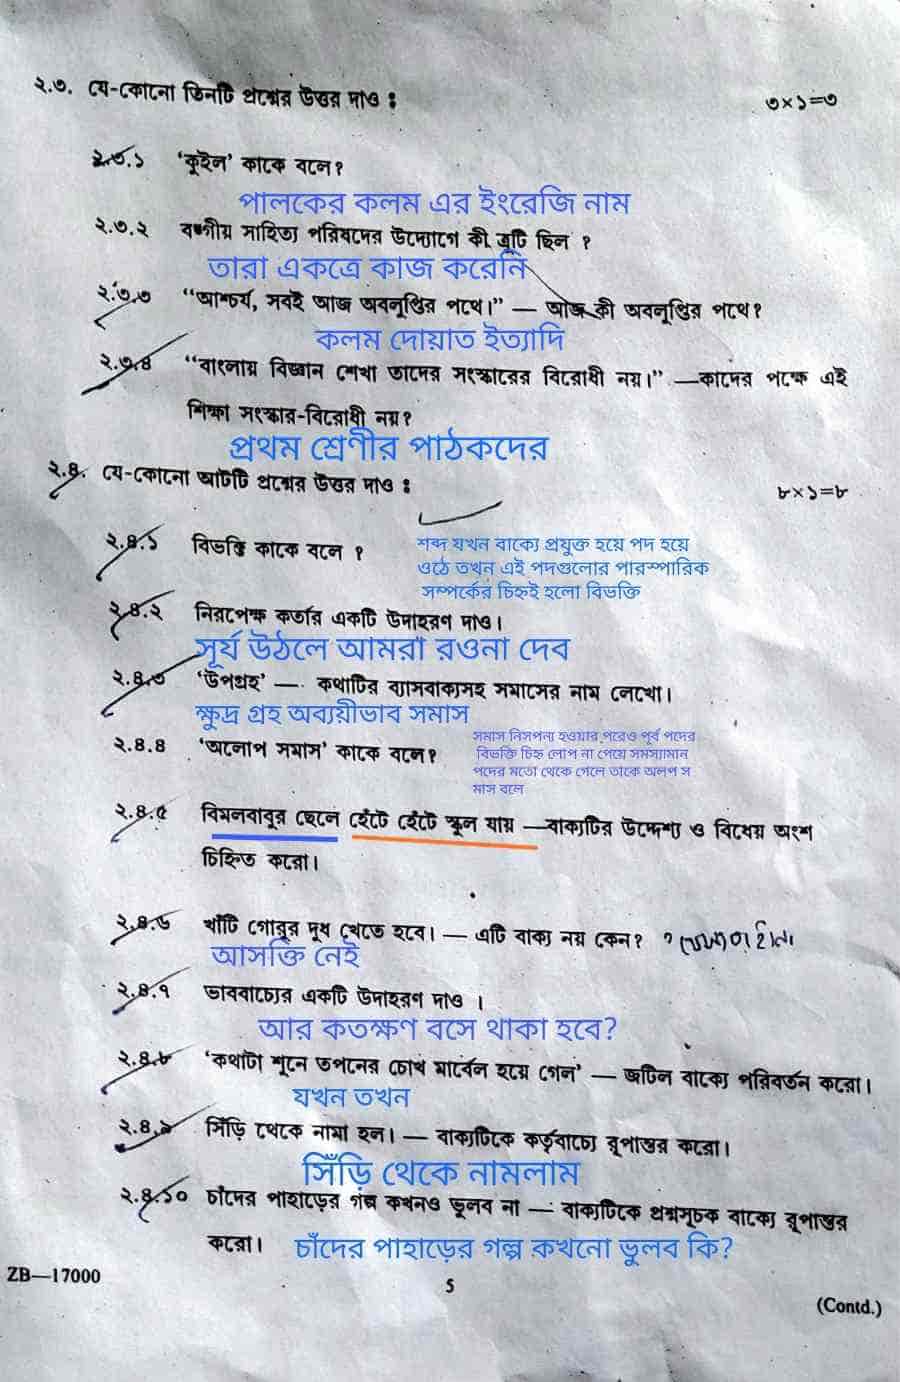 ২.৩. যে-কোনো তিনটি প্রশ্নের উত্তর দাও : ৩×১=৩
২.৩.১ ‘কুইল’ কাকে বলে ?
পালকের কলম এর ইংরেজি নাম
২.৩.২ বঙ্গীয় সাহিত্য পরিষদের উদ্যোগে কী ত্রুটি ছিল ?
তারা একত্রে কাজ করেনি
২.৩.৩ “আশ্চর্য, সবই আজ অবলুপ্তির পথে।” — আজ কী অবলুপ্তির পথে ?
কলম দোয়াত ইত্যাদি
২.৩.৪ “বাংলায় বিজ্ঞান শেখা তাদের সংস্কারের বিরোধী নয়।” —কাদের পক্ষে এই
শিক্ষা সংস্কার-বিরোধী নয় ?
প্রথম শ্রেণীর পাঠকদের
২.৪. যে-কোনো আটটি প্রশ্নের উত্তর দাও : ৮×১=৮
২.৪.১ বিভক্তি কাকে বলে ?
শব্দ যখন বাক্যে প্রযুক্ত হয়ে পদ হয়ে
ওঠে তখন এই পদগুলোর পারস্পারিক
সম্পর্কের চিহ্নই হলো বিভক্তি
২.৪.২ নিরপেক্ষ কর্তার একটি উদাহরণ দাও।
সূর্য উঠলে আমরা রওনা দেব
২.৪.৩ ‘উপগ্রহ’ — কথাটির ব্যাসবাক্যসহ সমাসের নাম লেখো।
ক্ষুদ্র গ্রহ অব্যয়ীভাব সমাস
২.৪.৪ ‘অলোপ সমাস’ কাকে বলে ?
সমাস নিসপন্য হওয়ার পরেও পূর্ব পদের
বিভক্তি চিহ্ন লোপ না পেয়ে সমস্যামান
পদের মতো থেকে গেলে তাকে অলপ স
মাস বলে
২.৪.৫ বিমলবাবুর ছেলে হেঁটে হেঁটে স্কুল যায় —বাক্যটির উদ্দেশ্য ও বিধেয় অংশ
চিহ্নিত করো।
২.৪.৬ খাঁটি গোরুর দুধ খেতে হবে। — এটি বাক্য নয় কেন ?
আসক্তি নেই
২.৪.৭ ভাববাচ্যের একটি উদাহরণ দাও ।
আর কতক্ষণ বসে থাকা হবে?
২.৪.৮ ‘কথাটা শুনে তপনের চোখ মার্বেল হয়ে গেল’ — জটিল বাক্যে পরিবর্তন করো।
যখন তখন
২.৪.৯ সিঁড়ি থেকে নামা হল। — বাক্যটিকে কর্তৃবাচ্যে রূপান্তর করো।
সিঁড়ি থেকে নামলাম
২.৪.১০ চাঁদের পাহাড়ের গল্প কখনও ভুলব না — বাক্যটিকে প্রশ্নসূচক বাক্যে রূপান্তর
করো। চাঁদের পাহাড়ের গল্প কখনো ভুলব কি?
ZB—17000
5
(Contd.)